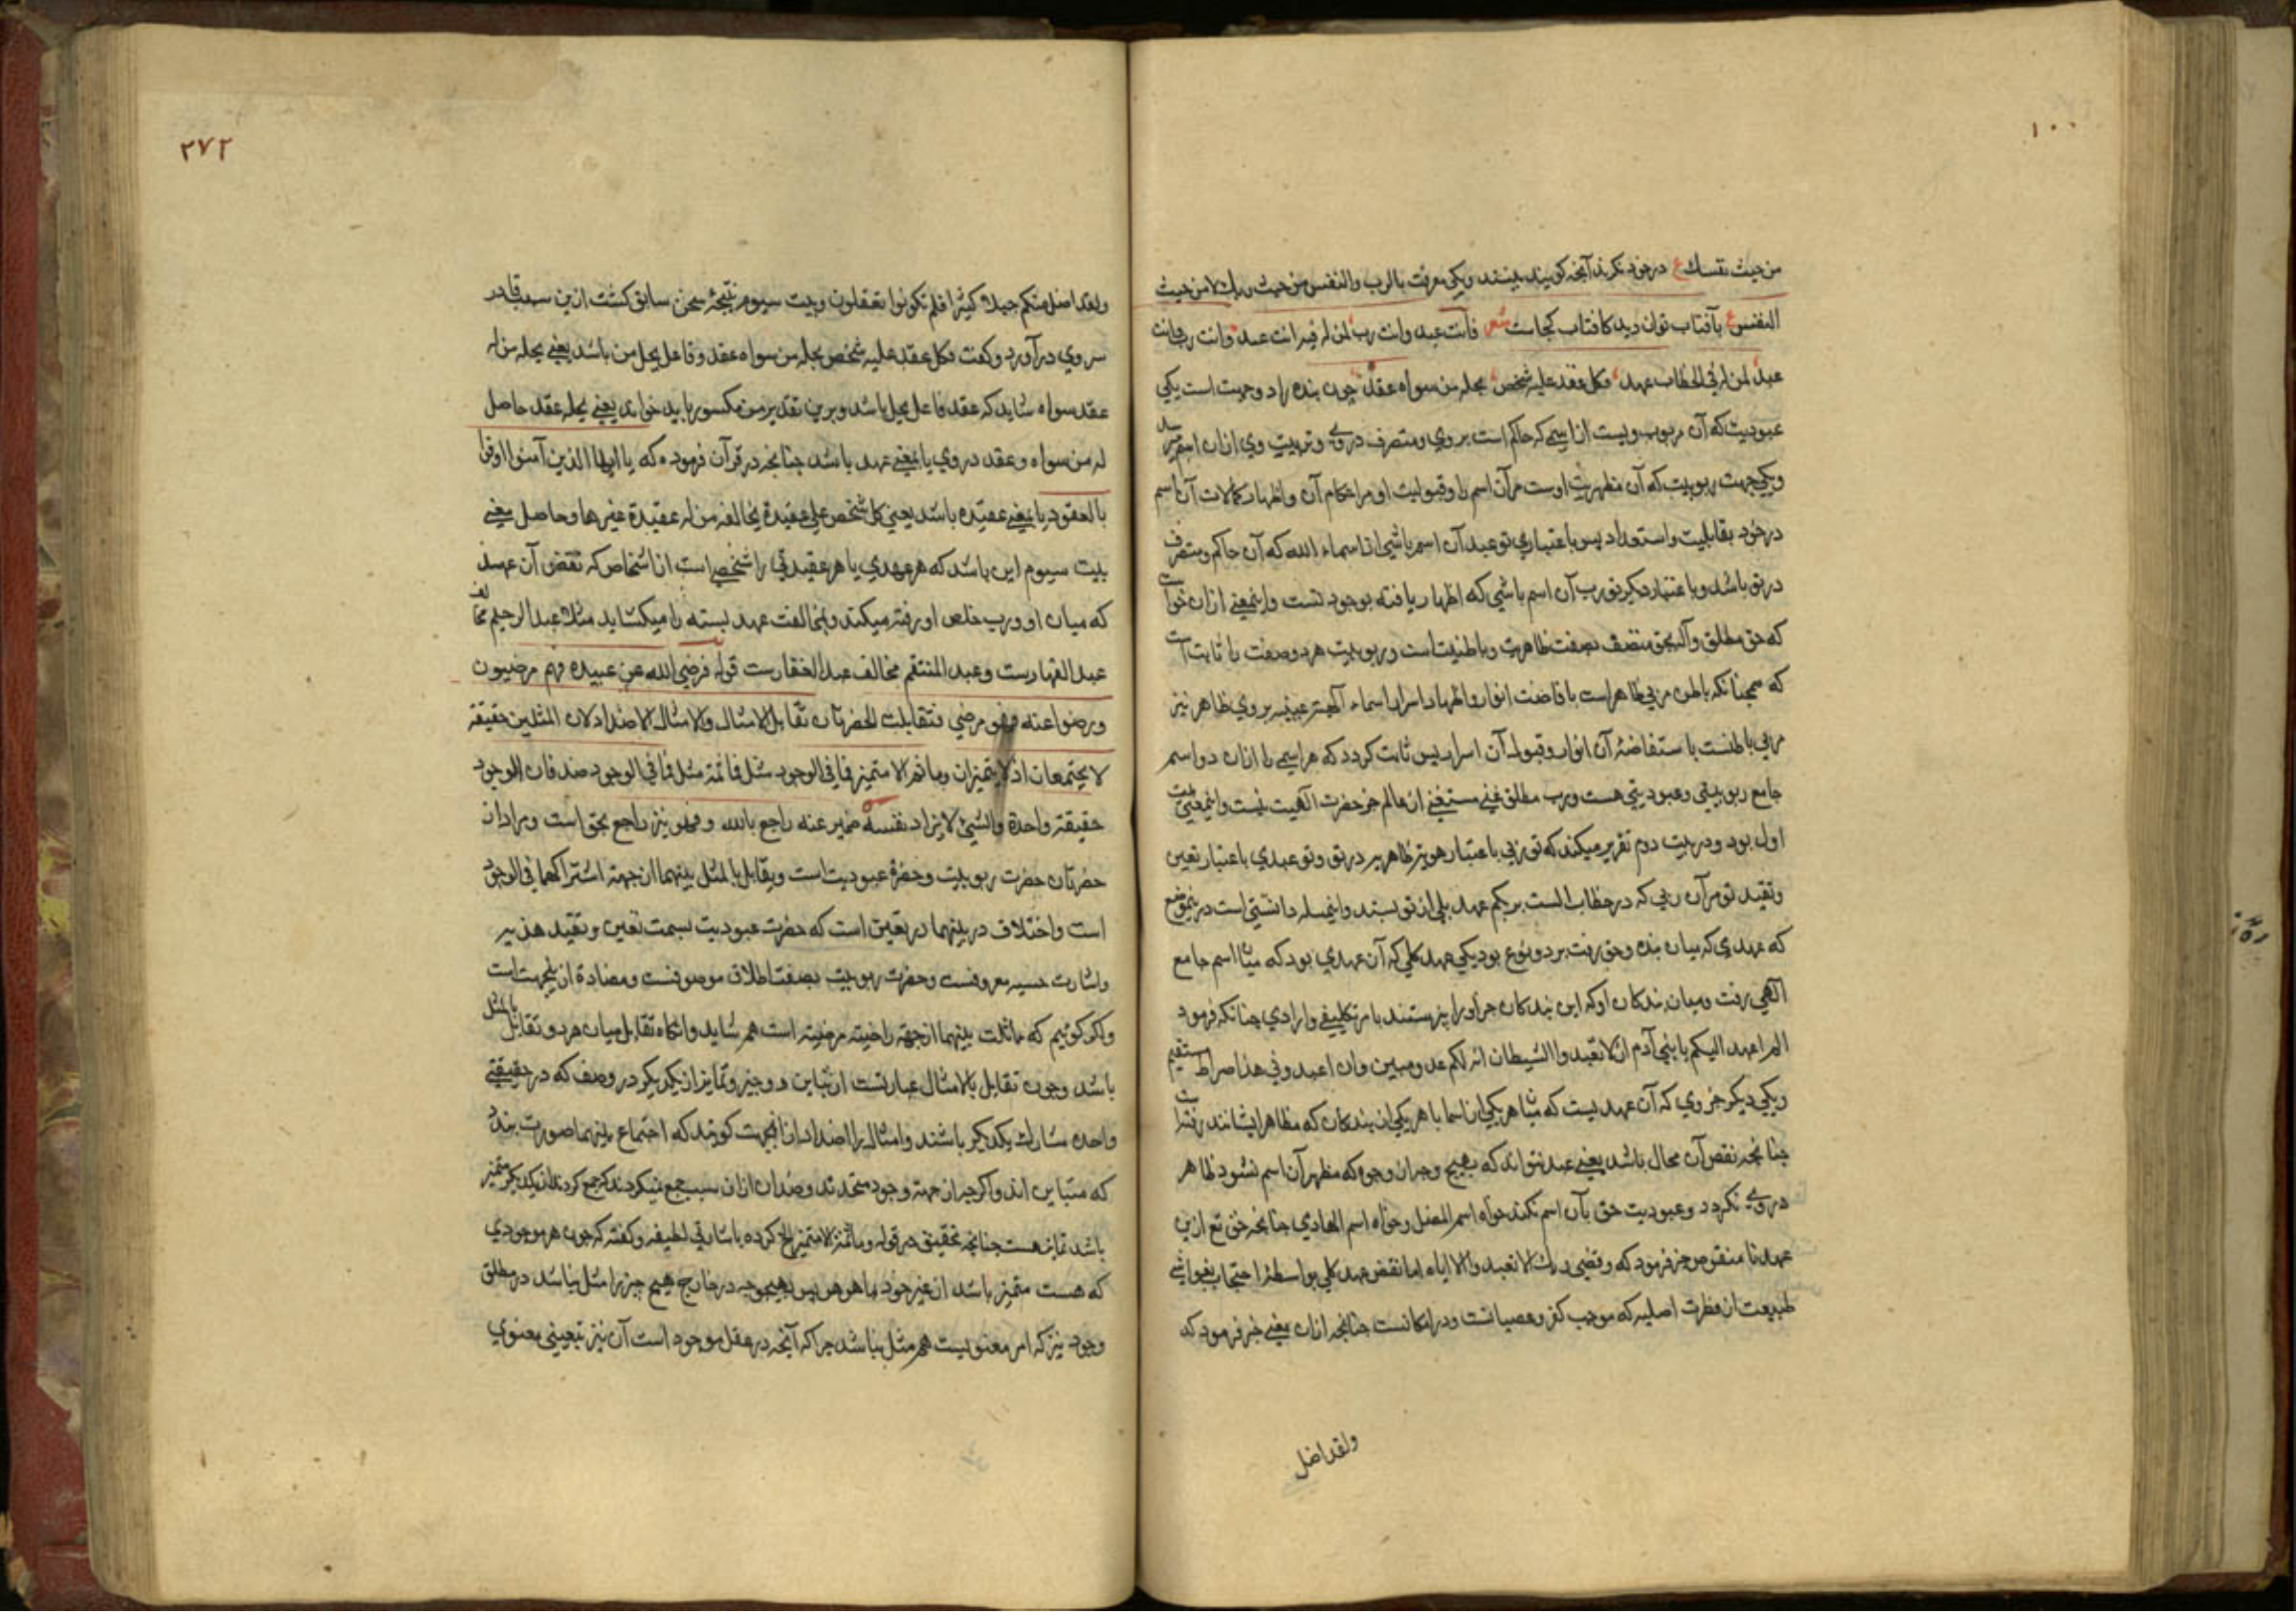 ١٠٠
من حيث نفسك ع در خود نکرند آنچه کویند بینند ویکی معرفت بالرب والنفس من حیث ربك لا من حیث
النفس ع بآفتاب توان دید کافتاب کجاست شعر فانت عبد وانت رب لمن له فیه انت عبد وانت رب وانت
عبد لمن له فی الخطاب عهد فکل عقد علیه شخص یحله من سواه عقد چون بنده را دو جهت است یکی
عبودیت که آن مربوب ویست از اسمی که حاکم است بر وی ومتصرف در وی وتربیت وی ازان اسم
ویکی جهت ربوبیت که آن مظهریت اوست مر آن اسم را وقبولیت او مر احکام آن واظهار کمالات آن اسم
در خود بقابلیت واستعداد پس باعتباری تو عبد آن اسم باشی از اسماء الله که آن حاکم ومتصرف
در تو باشد وباعتبار دیکر تو رب آن اسم باشی که اظهار یافته بوجود تست واینمعنی ازان خواست
که حق مطلق وآله بحق متصف بصفت ظاهریت وباطنیت است وربوبیت هر دو صفت را ثابت است
که همچنانکه باطن مربی ظاهر است بافاضت انوار واظهار اسرار اسماء الهیه غیبیه بر وی ظاهر نیز
مربی باطنست باستفاضهٔ آن انوار وقبول آن اسرار پس ثابت کردد که هر اسمی را ازان دو اسم
جامع ربوبیتی وعبودیتی هست ورب مطلق غنی مستغنی از عالم جز حضرت الهیت نیست واینمعنی بیت
اول بود ودر بیت دوم تقریر میکند که تو ربی باعتبار هویت ظاهره در تو وتو عبدی باعتبار تعین
وتقید تو مر آن ربی که در خطاب الست بربکم عهد بلی از تو بستد واینمسله دانستنی است در ینموضع
که عهدی که میان بنده وحق رفت بر دو نوع بود یکی عهد کلی که آن عهدی بود که میان اسم جامع
الهی رفت ومیان بندکان او که این بندکان جز او را نپرستند بامر تکلیفی وارادی چنانکه فرمود
الم اعهد الیکم یا بنی آدم ان لا تعبدوا الشیطان انه لکم عدو مبین وان اعبدونی هذا صراط مستقیم
ویکی دیکر جزوی که آن عهدیست که میان هر یکی از اسما با هر یکی از بندکان که مظاهر ایشانند رفته است
چنانچه نقض آن محال باشد یعنی عبد نتواند که بهیچ وجه از وجوه که مظهر آن اسم نشود ظاهر
در وی نکردد وعبودیت حق بآن اسم نکند خواه اسم المضل وخواه اسم الهادی چنانچه حق تع ازین
عهد نا منقوض خبر فرمود که وقضی ربك الا تعبدوا الا ایاه اما نقض عهد کلی بواسطهٔ احتجاب بغواشی
طبیعت از فطرت اصلیه که موجب کفر وعصیانست ودر امکانست چنانچه ازان یعنی خبر فرمود که
ولقد اضل
٢٧٢
ولقد اضل منکم جبلا کثیرا افلم تکونوا تعقلون وبیت سیوم نتیجهٔ سخن سابق کشت ازین سبب
سر وی در آورد وکفت فکل عقد علیه شخص یحله من سواه عقد وفاعل یحل من باشد یعنی یحله من له
عقد سواه شاید که عقد فاعل یحل باشد وبرین تقدیر من مکسور باید خواند یعنی یحله عقد حاصل
له من سواه وعقد در وی یا بمعنی عهد باشد چنانچه در قرآن فرموده که یا ایها الذین آمنوا اوفوا
بالعقود یا بمعنی عقیده باشد یعنی کل شخص علی عقیدة یخالفه من له عقیدة غیرها وحاصل معنی
بیت سیوم این باشد که هر عهدی یا هر عقیدتی را شخصی است از اشخاص که نقض آن عهد
که میان او ورب خاص او رفته میکند وبمخالفت عهد بسته را میکشاید مثلا عبد الرحیم مخالف
عبد القهارست وعبد المنتقم مخالف عبد الغفارست قوله فرضی الله عن عبیده فهم مرضیون
ورضوا عنه فهو مرضی فتقابلت الحضرتان تقابل الامثال والامثال الاضداد لان المثلین حقیقة
لا یجتمعان اذ لا یتمیزان وما ثم الا متمیز فما فی الوجود مثل فما ثمة مثل فما فی الوجود ضد فان الوجود
حقیقة واحدة والشیء لا یزاد نفسه ضمیر عنه راجع بالله وفهو نیز راجع بحق است ومراد از
حضرتان حضرت ربوبیت وحضرة عبودیت است وتقابل بالمثل بینهما از جهة اشتراکهما فی الوجود
است واختلاف در بینهما در تعین است که حضرت عبودیت بسمت تعین وتقید هذیه
واشارت حسیه معروفست وحضرت ربوبیت بصفت اطلاق موصوفست ومضادة ازینجهت است
واکر کوئیم که مماثلت بینهما از جهة راضیة مرضیة است هم شاید وانکاه تقابل میان هر دو تقابل بالمثل
باشد وچون تقابل بالامثال عبارتست از تباین دو چیز وتمایز از یکدیکر در وصف که در حقیقتی
واحده مشارك یکدیکر باشند وامثال را اضداد ازانجهت کویند که اجتماع بینهما صورت نبندد
که متباین اند واکرچه از جهة وجود متحدند وضدان ازان سبب جمع نیکردند که جمع کردند از یکدیکر متمیز
باشد تمایز هست چنانچه تحقیق در قوله وما ثمة الا متمیز الخ کرده باشارتی لطیفه وکفته که چون هر موجودی
که هست متمیز باشد از غیر خود بما هو هو پس بهیچوجه در خارج هیچ چیز را مثل نباشد در مطلق
وجود نیز که امر معنویست هم مثل نباشد چرا که آنچه در عقل موجود است آن نیز بتعینی معنوی